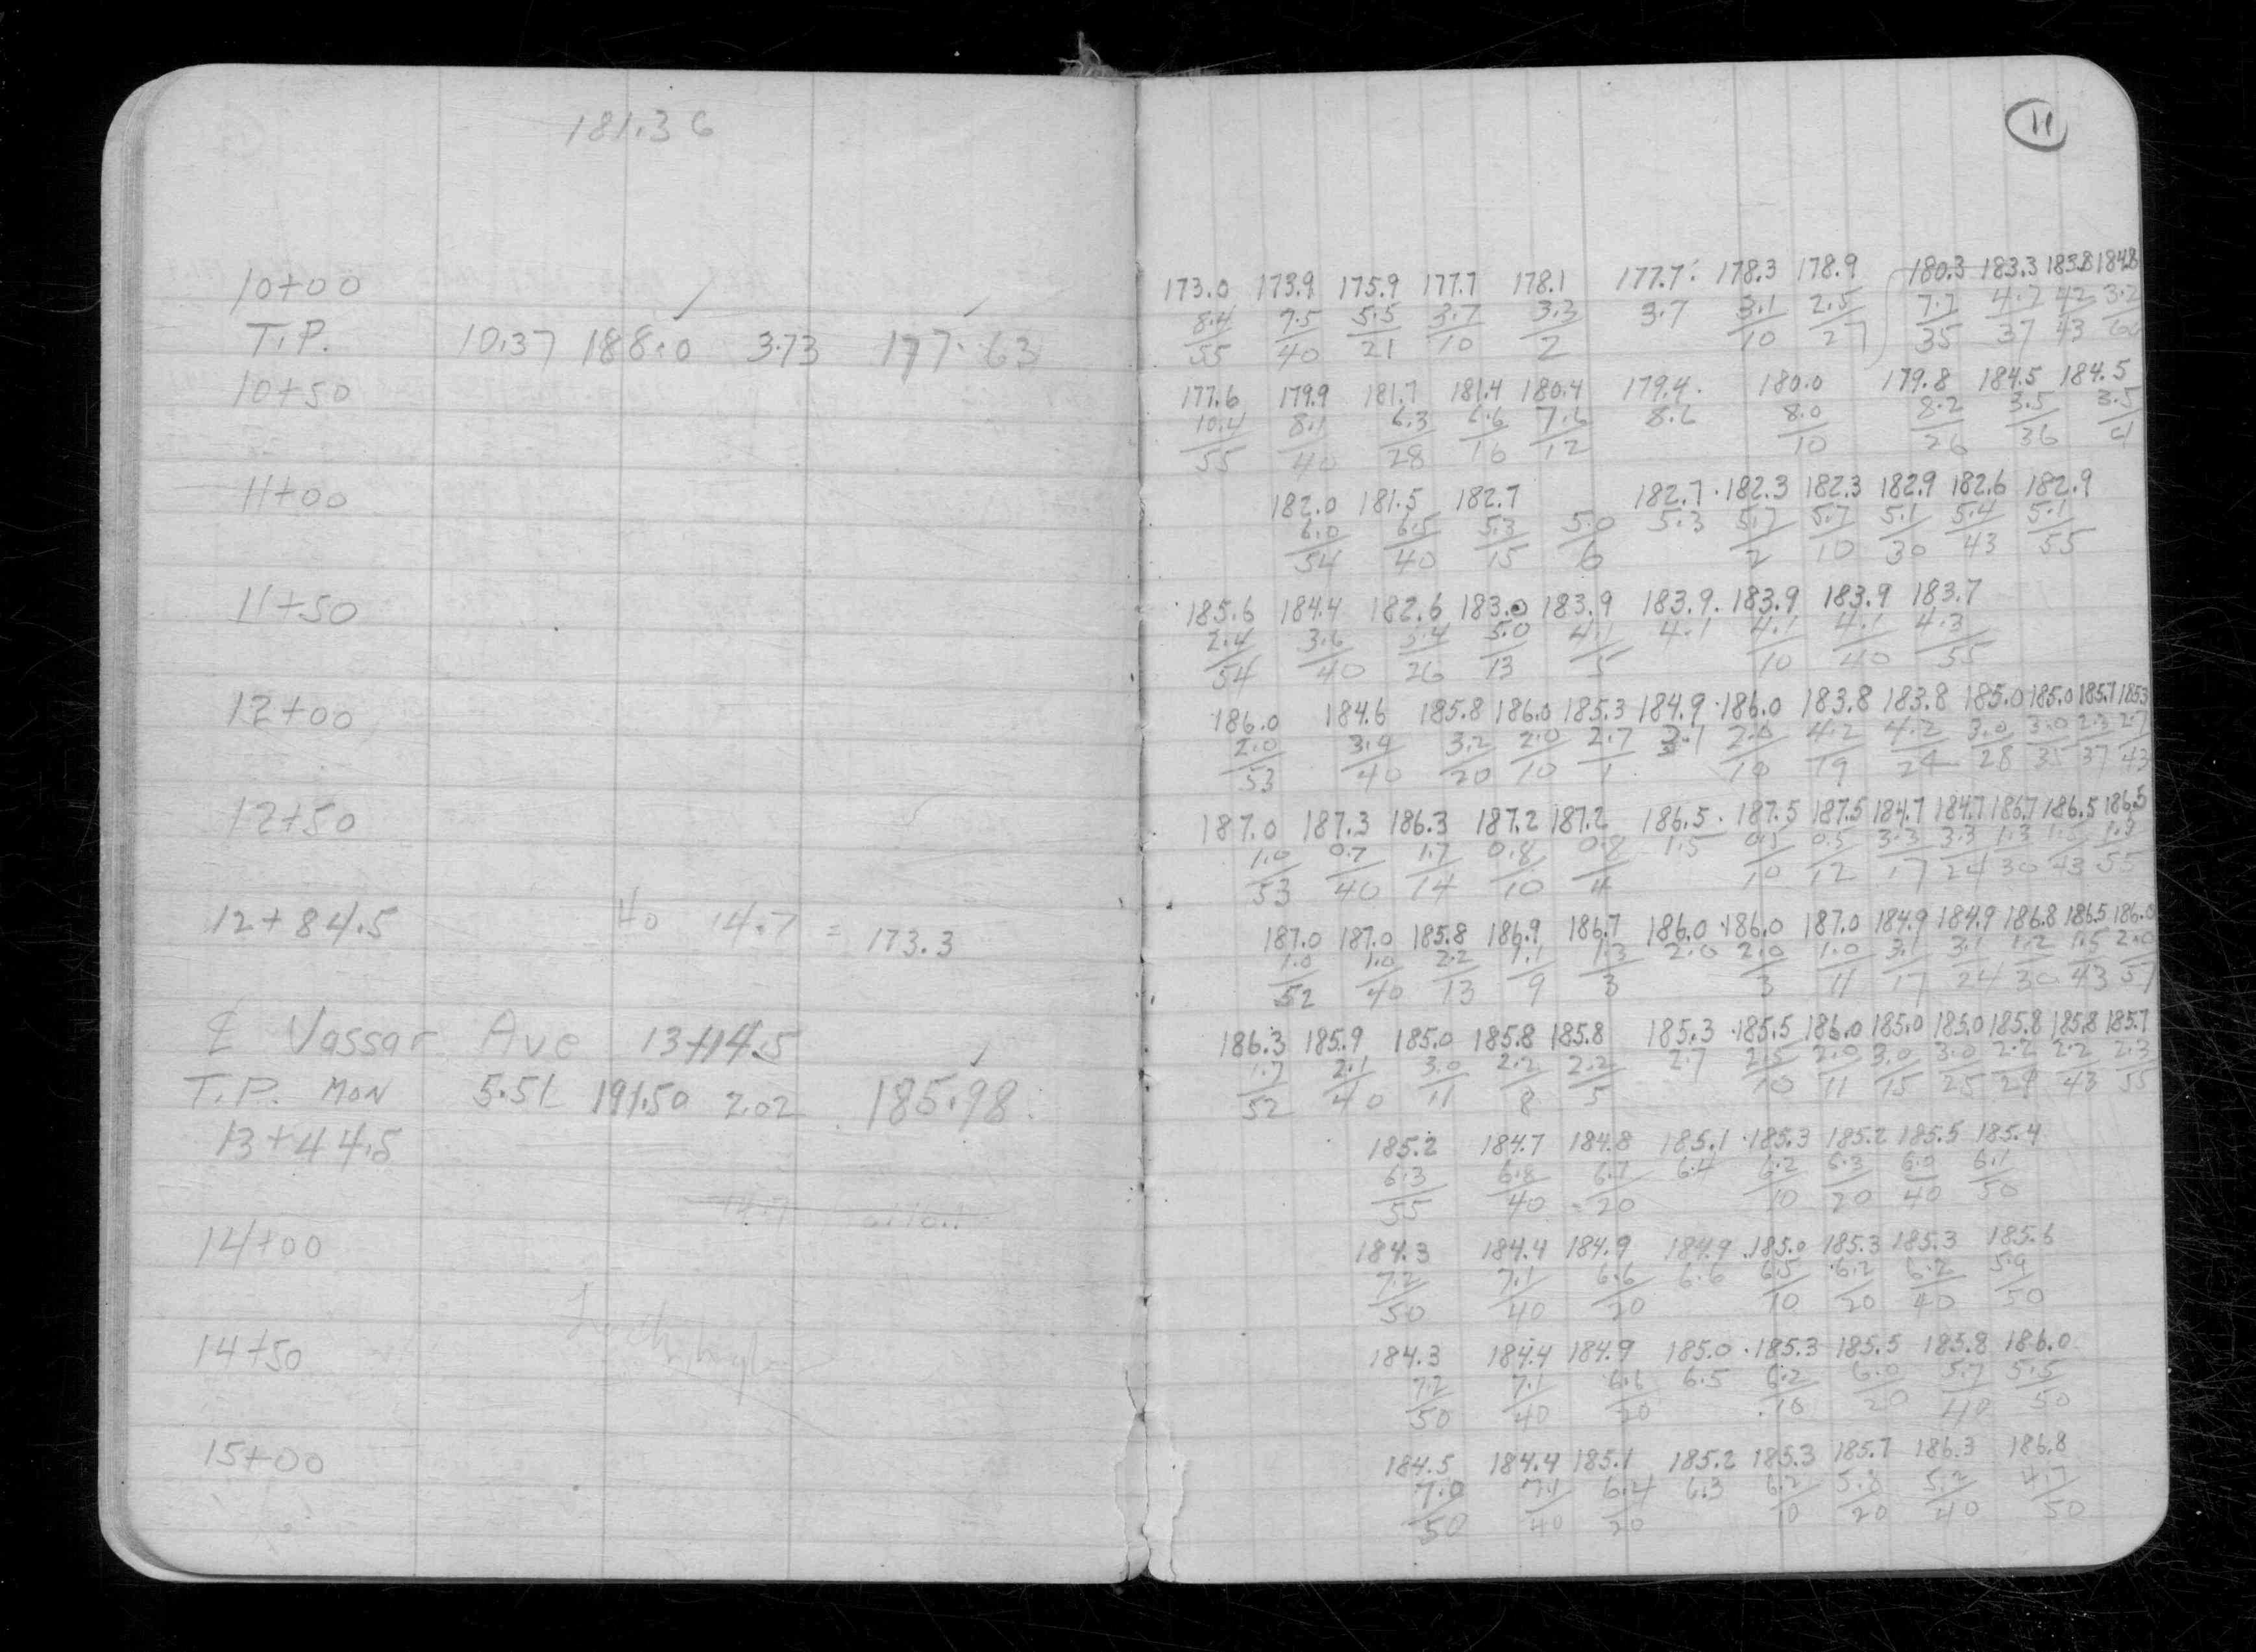 181.36
10+00
T.P. 10.37 188.0 3.73 177.63
10+50
11+00
11+50
12+00
12+50
12+84.5 40 14.7 = 173.3
℄ Vassar Ave 13+14.5
T.P. MON 5.52 191.50 2.02 185.98
13+44.5
14+00
14+50
15+00
11
173.0 173.9 175.9 177.7 178.1 177.7 178.3 178.9 180.3 183.3 183.8 184.8
8.4 7.5 5.5 3.7 3.3 3.7 3.1 2.5 7.7 4.7 4.2 3.2
55 40 21 10 2 10 27 35 37 43 60
177.6 179.9 181.7 181.4 180.4 179.4 180.0 179.8 184.5 184.5
10.4 8.1 6.3 6.6 7.6 8.6 8.0 8.2 3.5 3.5
55 40 28 16 12 10 26 36
182.0 181.5 182.7 182.7 182.3 182.3 182.9 182.6 182.9
6.0 6.5 5.3 5.0 5.3 5.7 5.7 5.1 5.4 5.1
54 40 15 6 2 10 30 43 55
185.6 184.4 182.6 183.0 183.9 183.9 183.9 183.9 183.7
2.4 3.6 5.4 5.0 4.1 4.1 4.1 4.1 4.3
54 40 26 13 5 10 40 55
186.0 184.6 185.8 186.0 185.3 184.9 186.0 183.8 183.8 185.0 185.0 185.7 185.3
2.0 3.4 3.2 2.0 2.7 3.1 2.0 4.2 4.2 3.0 3.0 2.3 2.7
53 40 20 10 1 10 19 24 28 35 37 43
187.0 187.3 186.3 187.2 187.2 186.5 187.5 187.5 184.7 184.7 186.7 186.5 186.5
1.0 0.7 1.7 0.8 0.8 1.5 0.5 0.5 3.3 3.3 1.3 1.5 1.5
53 40 14 10 4 10 12 17 24 30 43 55
187.0 187.0 185.8 186.9 186.7 186.0 186.0 187.0 184.9 184.9 186.8 186.5 186.0
1.0 1.0 2.2 1.1 1.3 2.0 2.0 1.0 3.1 3.1 1.2 1.5 2.0
52 40 13 9 3 3 11 17 24 30 43 57
186.3 185.9 185.0 185.8 185.8 185.3 185.5 186.0 185.0 185.0 185.8 185.8 185.7
1.7 2.1 3.0 2.2 2.2 2.7 2.5 2.0 3.0 3.0 2.2 2.2 2.3
52 40 11 8 5 10 11 15 25 29 43 55
185.2 184.7 184.8 185.1 185.3 185.2 185.5 185.4
6.3 6.8 6.7 6.4 6.2 6.3 6.0 6.1
55 40 20 10 20 40 50
184.3 184.4 184.9 184.9 185.0 185.3 185.3 185.6
7.2 7.1 6.6 6.6 6.5 6.2 6.2 5.9
50 40 20 10 20 40 50
184.3 184.4 184.9 185.0 185.3 185.5 185.8 186.0
7.2 7.1 6.6 6.5 6.2 6.0 5.7 5.5
50 40 20 10 20 40 50
184.5 184.4 185.1 185.2 185.3 185.7 186.3 186.8
7.0 7.1 6.4 6.3 6.2 5.8 5.2 4.7
50 40 20 10 20 40 50